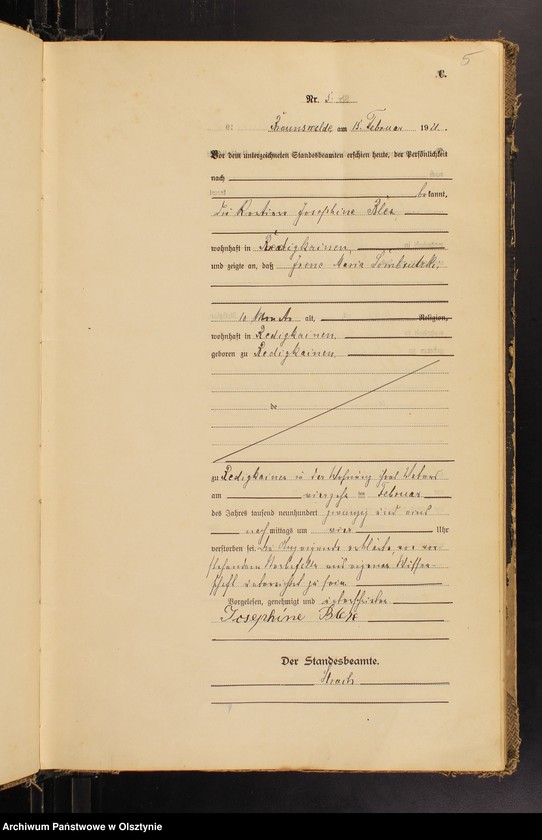 5
C.
Nr. 5
Braunswalde am 15. Februar 1921.
Vor dem unterzeichneten Standesbeamten erschien heute, der Persönlichkeit
nach
bekannt,
die Josephine Blex
wohnhaft in Redigkainen,
und zeigte an, daß Irene Maria
10 Monate alt, Religion,
wohnhaft in Redigkainen,
geboren zu Redigkainen,
de
zu Redigkainen in der Wohnung
am Februar
des Jahres tausend neunhundert zwanzig und eins
nachmittags um vier Uhr
verstorben sei. Die Anzeigende erklärte, von vor-
stehendem Sterbefalle aus eigener Wissen-
schaft unterrichtet zu sein.
Vorgelesen, genehmigt und unterschrieben
Josephine Blex
Der Standesbeamte.
Archiwum Państwowe w Olsztynie